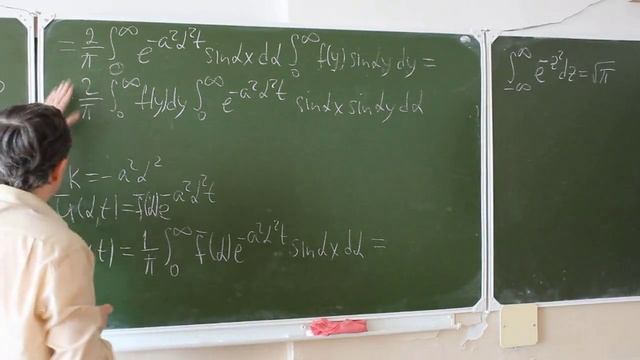 = 2/π ∫₀^∞ e^(-a²α²t) sinαx dα ∫₀^∞ f(y) sinαy dy =
2/π ∫₀^∞ f(y)dy ∫₀^∞ e^(-a²α²t) sinαx sinαy dα
k = -a²α²
ū(α,t) = f̄(α)e^(-a²α²t)
,t) = 1/π ∫₀^∞ f̄(α)e^(-a²α²t) sinαx dα =
∫_(-∞)^∞ e^(-z²)dz = √π